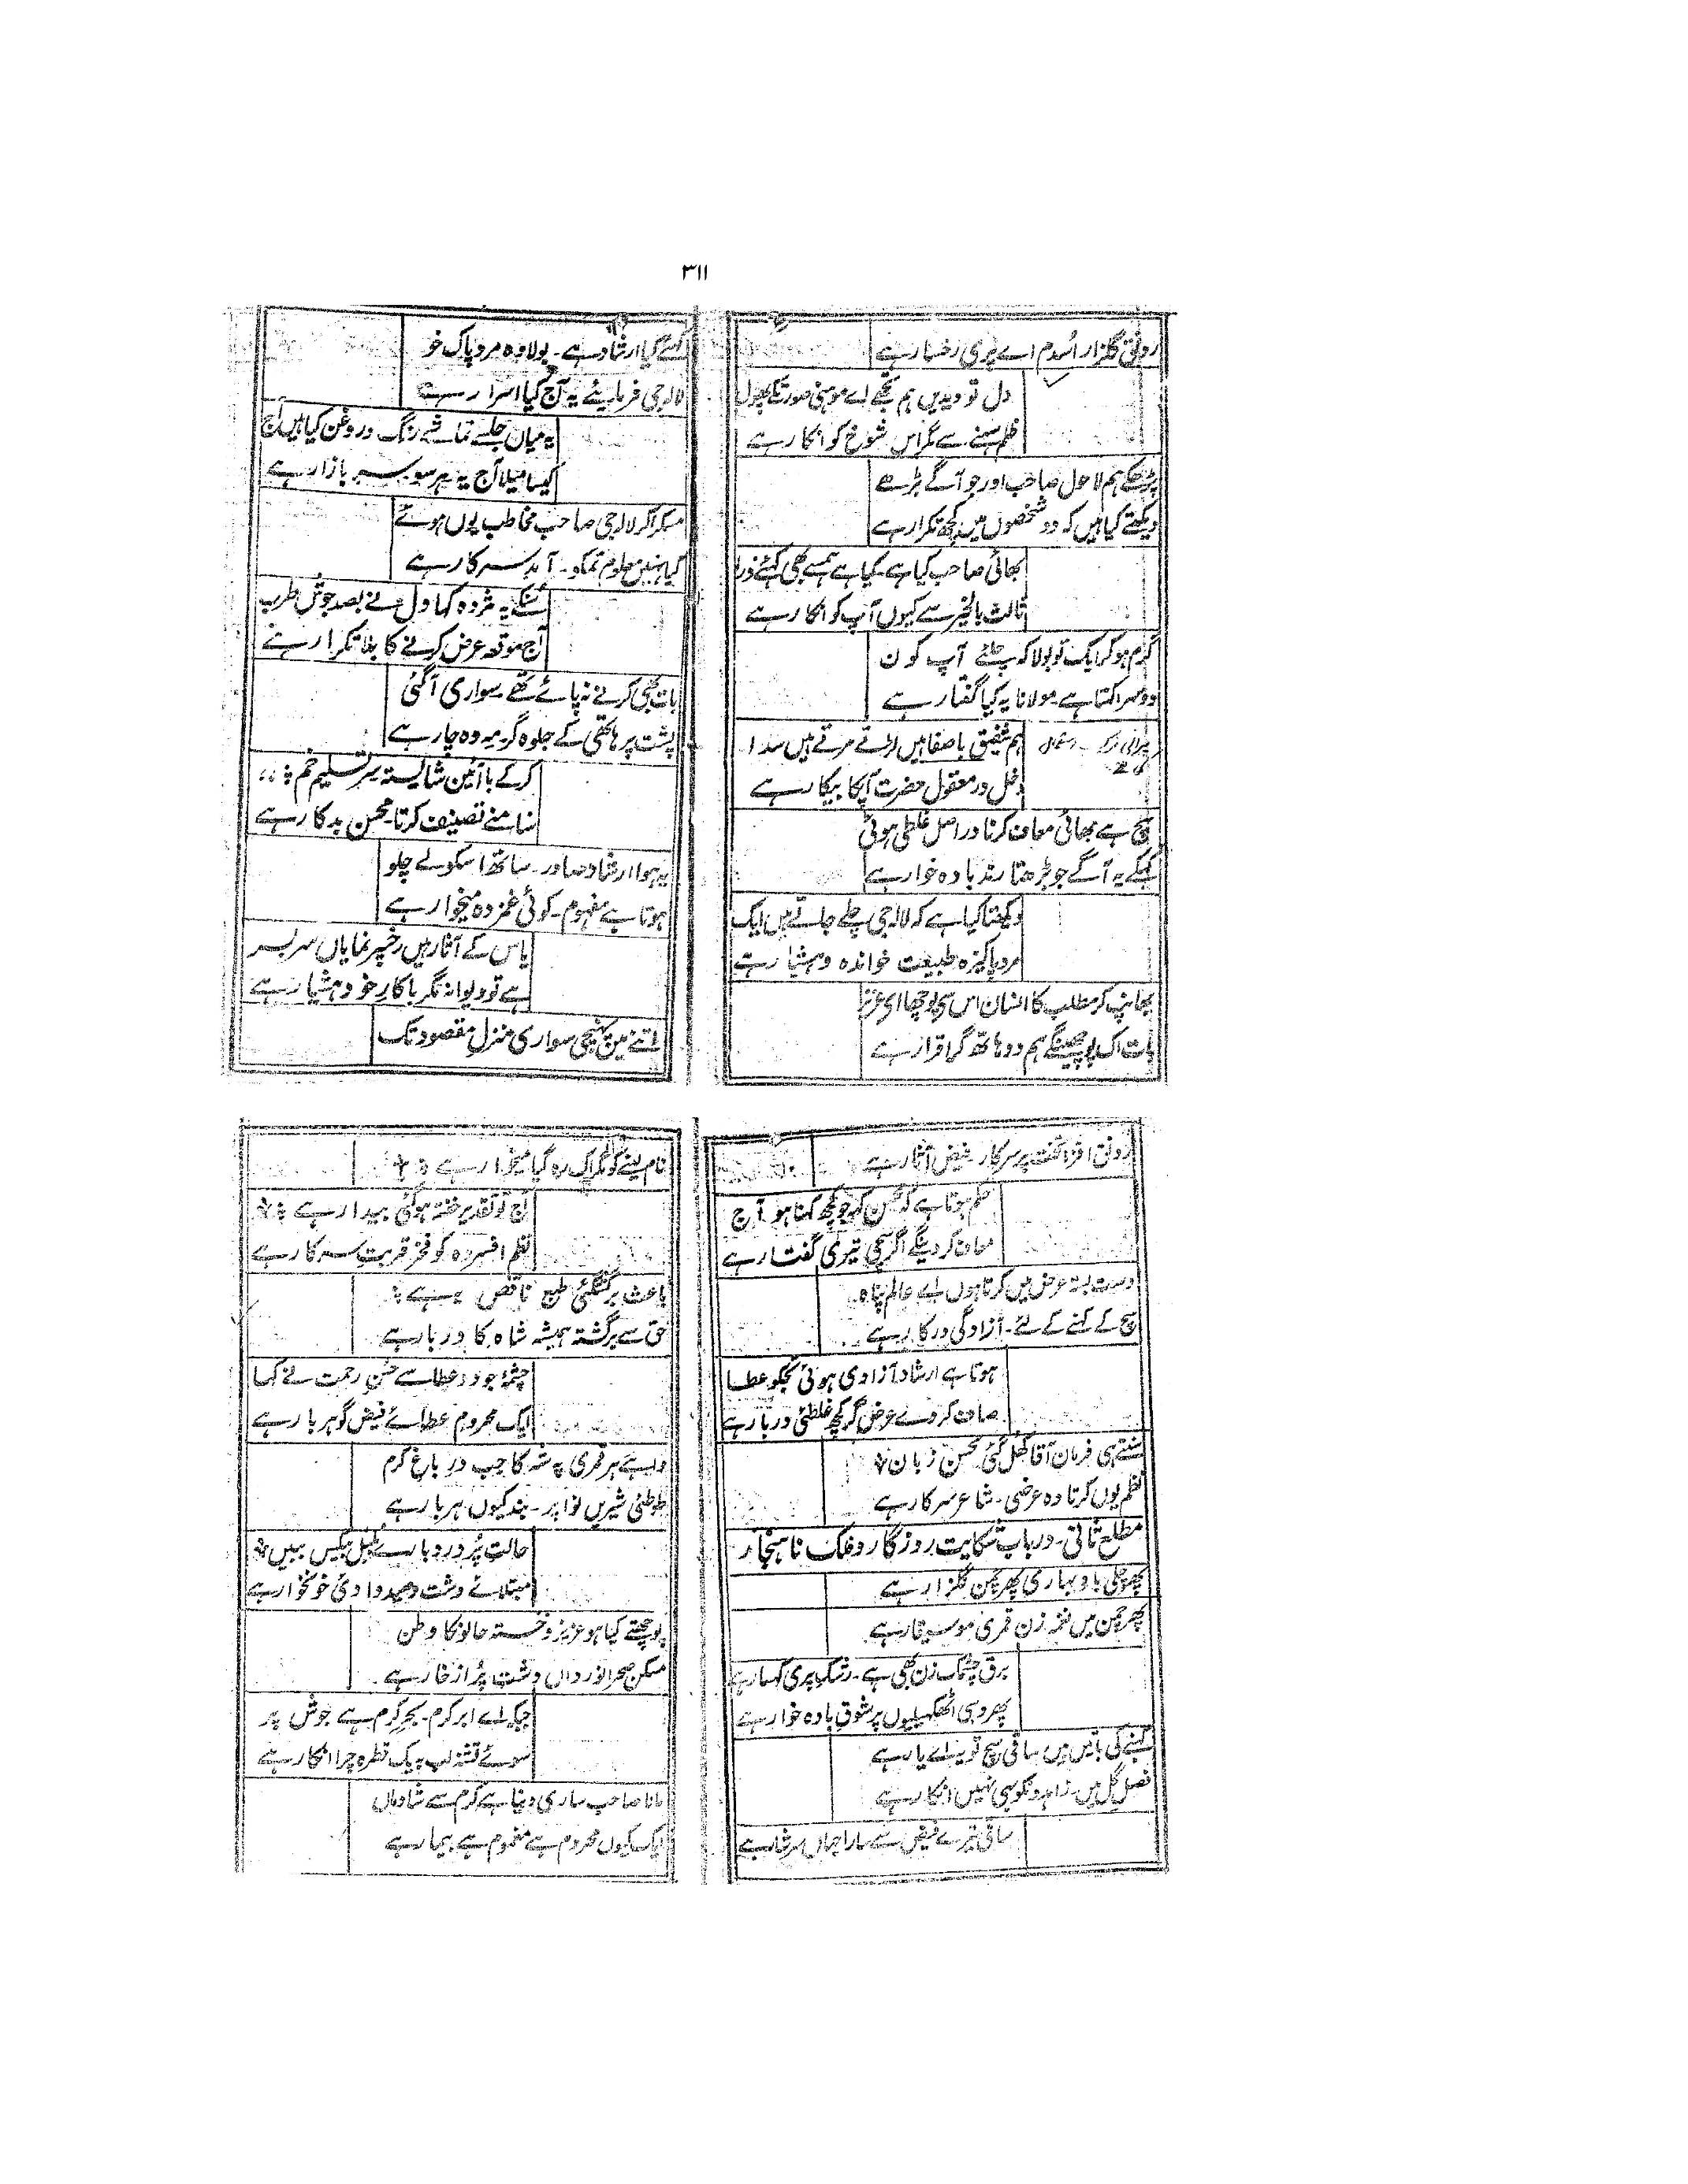 ۳۱۱
رونق گلزار اُسدم اے پری رخسار ہے
دل تو دیدیں ہم تجھے اے موہنی صورت کے پھول
ظلم سہنے سے مگر اس شوخ کو انکار ہے
پڑھکے ہم لاحول صاحب اور جو آگے بڑھے
دیکھتے کیا ہیں کہ دو شخصوں میں کچھ تکرار ہے
بھائی صاحب کیا ہے۔ کیا ہے ہمسے بھی کہئے ذرا
ثالث بالخیر سے کیوں آپ کو انکار ہے
گرم ہو کر ایک تو بولا کہ چلئے آپ کون
دوسرا کہتا ہے۔ مولانا یہ کیا گفتار ہے
ہم شفیق باصفا ہیں لڑتے مرتے ہیں سدا
دخل در معقول حضرت آپکا بیکار ہے
سچ ہے بھائی معاف کرنا دراصل غلطی ہوئی
کہکے یہ آگے جو بڑھتا رند بادہ خوار ہے
دیکھتا کیا ہے کہ لالہ جی چلے جاتے ہیں ایک
مرد پاکیزہ طبیعت خواندہ و ہشیار ہے
بھانپ کر مطلب کا انسان اس سے پوچھا اے عزیز
بات اک پوچھینگے ہم دو ہاتھ گر اقرار ہے
کہئے کیا ارشاد ہے۔ بولا وہ مرد پاک خو
لالہ جی فرمائیے یہ آج کیا اسرار ہے
یہ میاں جلسے تماشے رنگ و روغن کیا ہیں آج
کیسا میلا آج یہ ہر سو سر بازار ہے
مسکرا کر لالہ جی صاحب مخاطب یوں ہوئے
کیا نہیں معلوم تمکو۔ آمد سرکار ہے
سنکے یہ مژدہ کہا دل نے بصد جوش طرب
آج موقعہ عرض کرنے کا بلا تکرار ہے
بات بھی کرنے نہ پائے تھے۔ سواری آگئی
پشت پر ہاتھی کے جلوہ گر مہ دہ چار ہے
کرکے با آئین شائستہ سر تسلیم خم
سامنے تصنیف کرتا۔ محسن بدکار ہے
یہ ہوا ارشاد صادر۔ ساتھ اسکو لے چلو
ہوتا ہے مفہوم۔ کوئی غمزدہ میخوار ہے
یاس کے آثار ہیں رخ پر نمایاں سر بسر
ہے تو دیوانہ مگر باکار خود ہشیار ہے
اتنے میں پہنچی سواری منزل مقصود تک
رونق افزا تخت پر سرکار فیض آثار ہے
حکم ہوتا ہے کہ محسن کہہ جو کچھ کہنا ہو آج
معاف کر دینگے اگر سچی تیری گفتار ہے
دست بستہ عرض میں کرتا ہوں اے عالم پناہ
سچ کے کہنے کے لئے۔ آزادگی درکار ہے
ہوتا ہے ارشاد آزادی ہوئی تجکو عطا
صاف کردے عرض گر کچھ غلطئی دربار ہے
سنتے ہی فرمان آقا کھل گئی محسن زبان
نظم یوں کرتا وہ عرضی۔ شاعر سرکار ہے
مطلع ثانی۔ درباب شکایت روزگار و فلک ناہنجار
پھر چلی باد بہاری پھر چمن گلزار ہے
پھر چمن میں نغمہ زن قمری موسیقار ہے
برق چشمک زن بھی ہے۔ رشک پری کہسار ہے
پھر وہی اٹھکھیلیوں پر شوق بادہ خوار ہے
کہنے کی باتیں ہیں ساقی سچ تو یہ اے یار ہے
فصل گل میں۔ زاہدونکو بھی نہیں انکار ہے
ساقی تیرے فیض سے سارا جہاں سرشار ہے
نام لینے کو مگر اک رہ گیا میخوار ہے
آج تو تقدیر خفتہ ہو گئی بیدار ہے
نظم افسردہ کو فخر قربت سرکار ہے
باعث برگشتگئی طبع ناقص یہ ہے
حق سے برگشتہ ہمیشہ شاہ کا دربار ہے
چشمۂ جود و عطا سے حسن رحمت نے کہا
ایک محروم عطائے فیض گوہر بار ہے
وا ہے ہر قمری پہ شہ کا جب در باغ کرم
طوطئی شیریں نوا پر۔ بند کیوں ہر بار ہے
حالت پُر درد بارے بلبل بیکس ببیں
مبتلائے دشت و صد وادئ خونخوار ہے
پوچھتے کیا ہو عزیزو خستہ حالونکا وطن
مسکن صحرا نورداں دشت پُر از خار ہے
جبکہ اے ابر کرم۔ بحر کرم ہے جوش پر
سوئے تشنہ لب بہ یک قطرہ چرا انکار ہے
مانا صاحب ساری دنیا ہے کرم سے شادماں
ایک کیوں محروم ہے مغموم ہے بیمار ہے